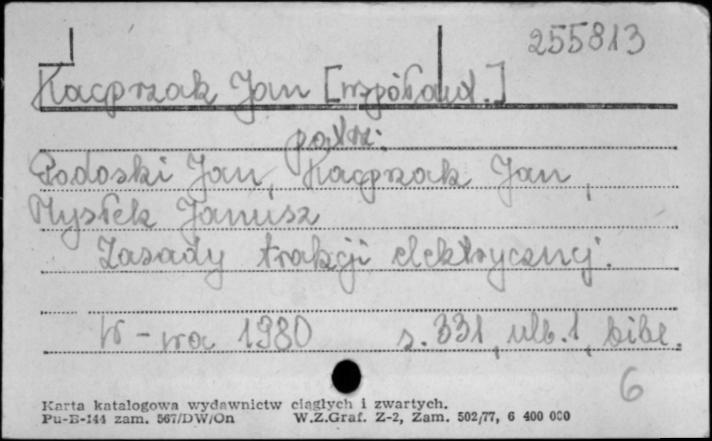 255813
Kacprzak Jan [współaut.]
patrz:
Podoski Jan, Kacprzak Jan,
Mysłek Janusz
Zasady trakcji elektrycznej.
W-wa 1980 s. 331, nlb. 1, bibl.
6
Karta katalogowa wydawnictw ciągłych i zwartych.
Pu-B-144 zam. 567/DW/On W.Z.Graf. Z-2, Zam. 502/77, 6 400 000